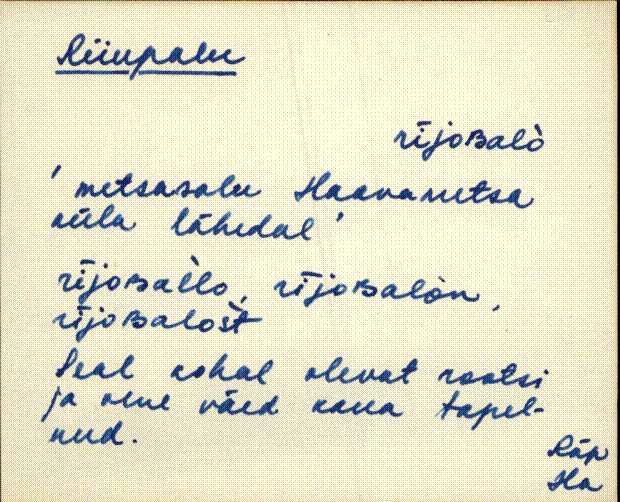 Riiupalu
rījoʙalò
' metsasalu Haavametsa
küla lähedal'
rījoʙal̀lo, rījoʙalòn,
rījoʙalošt
Seal kohal olevat rootsi
ja vene väed kaua tapel-
nud.
Räp
Ha